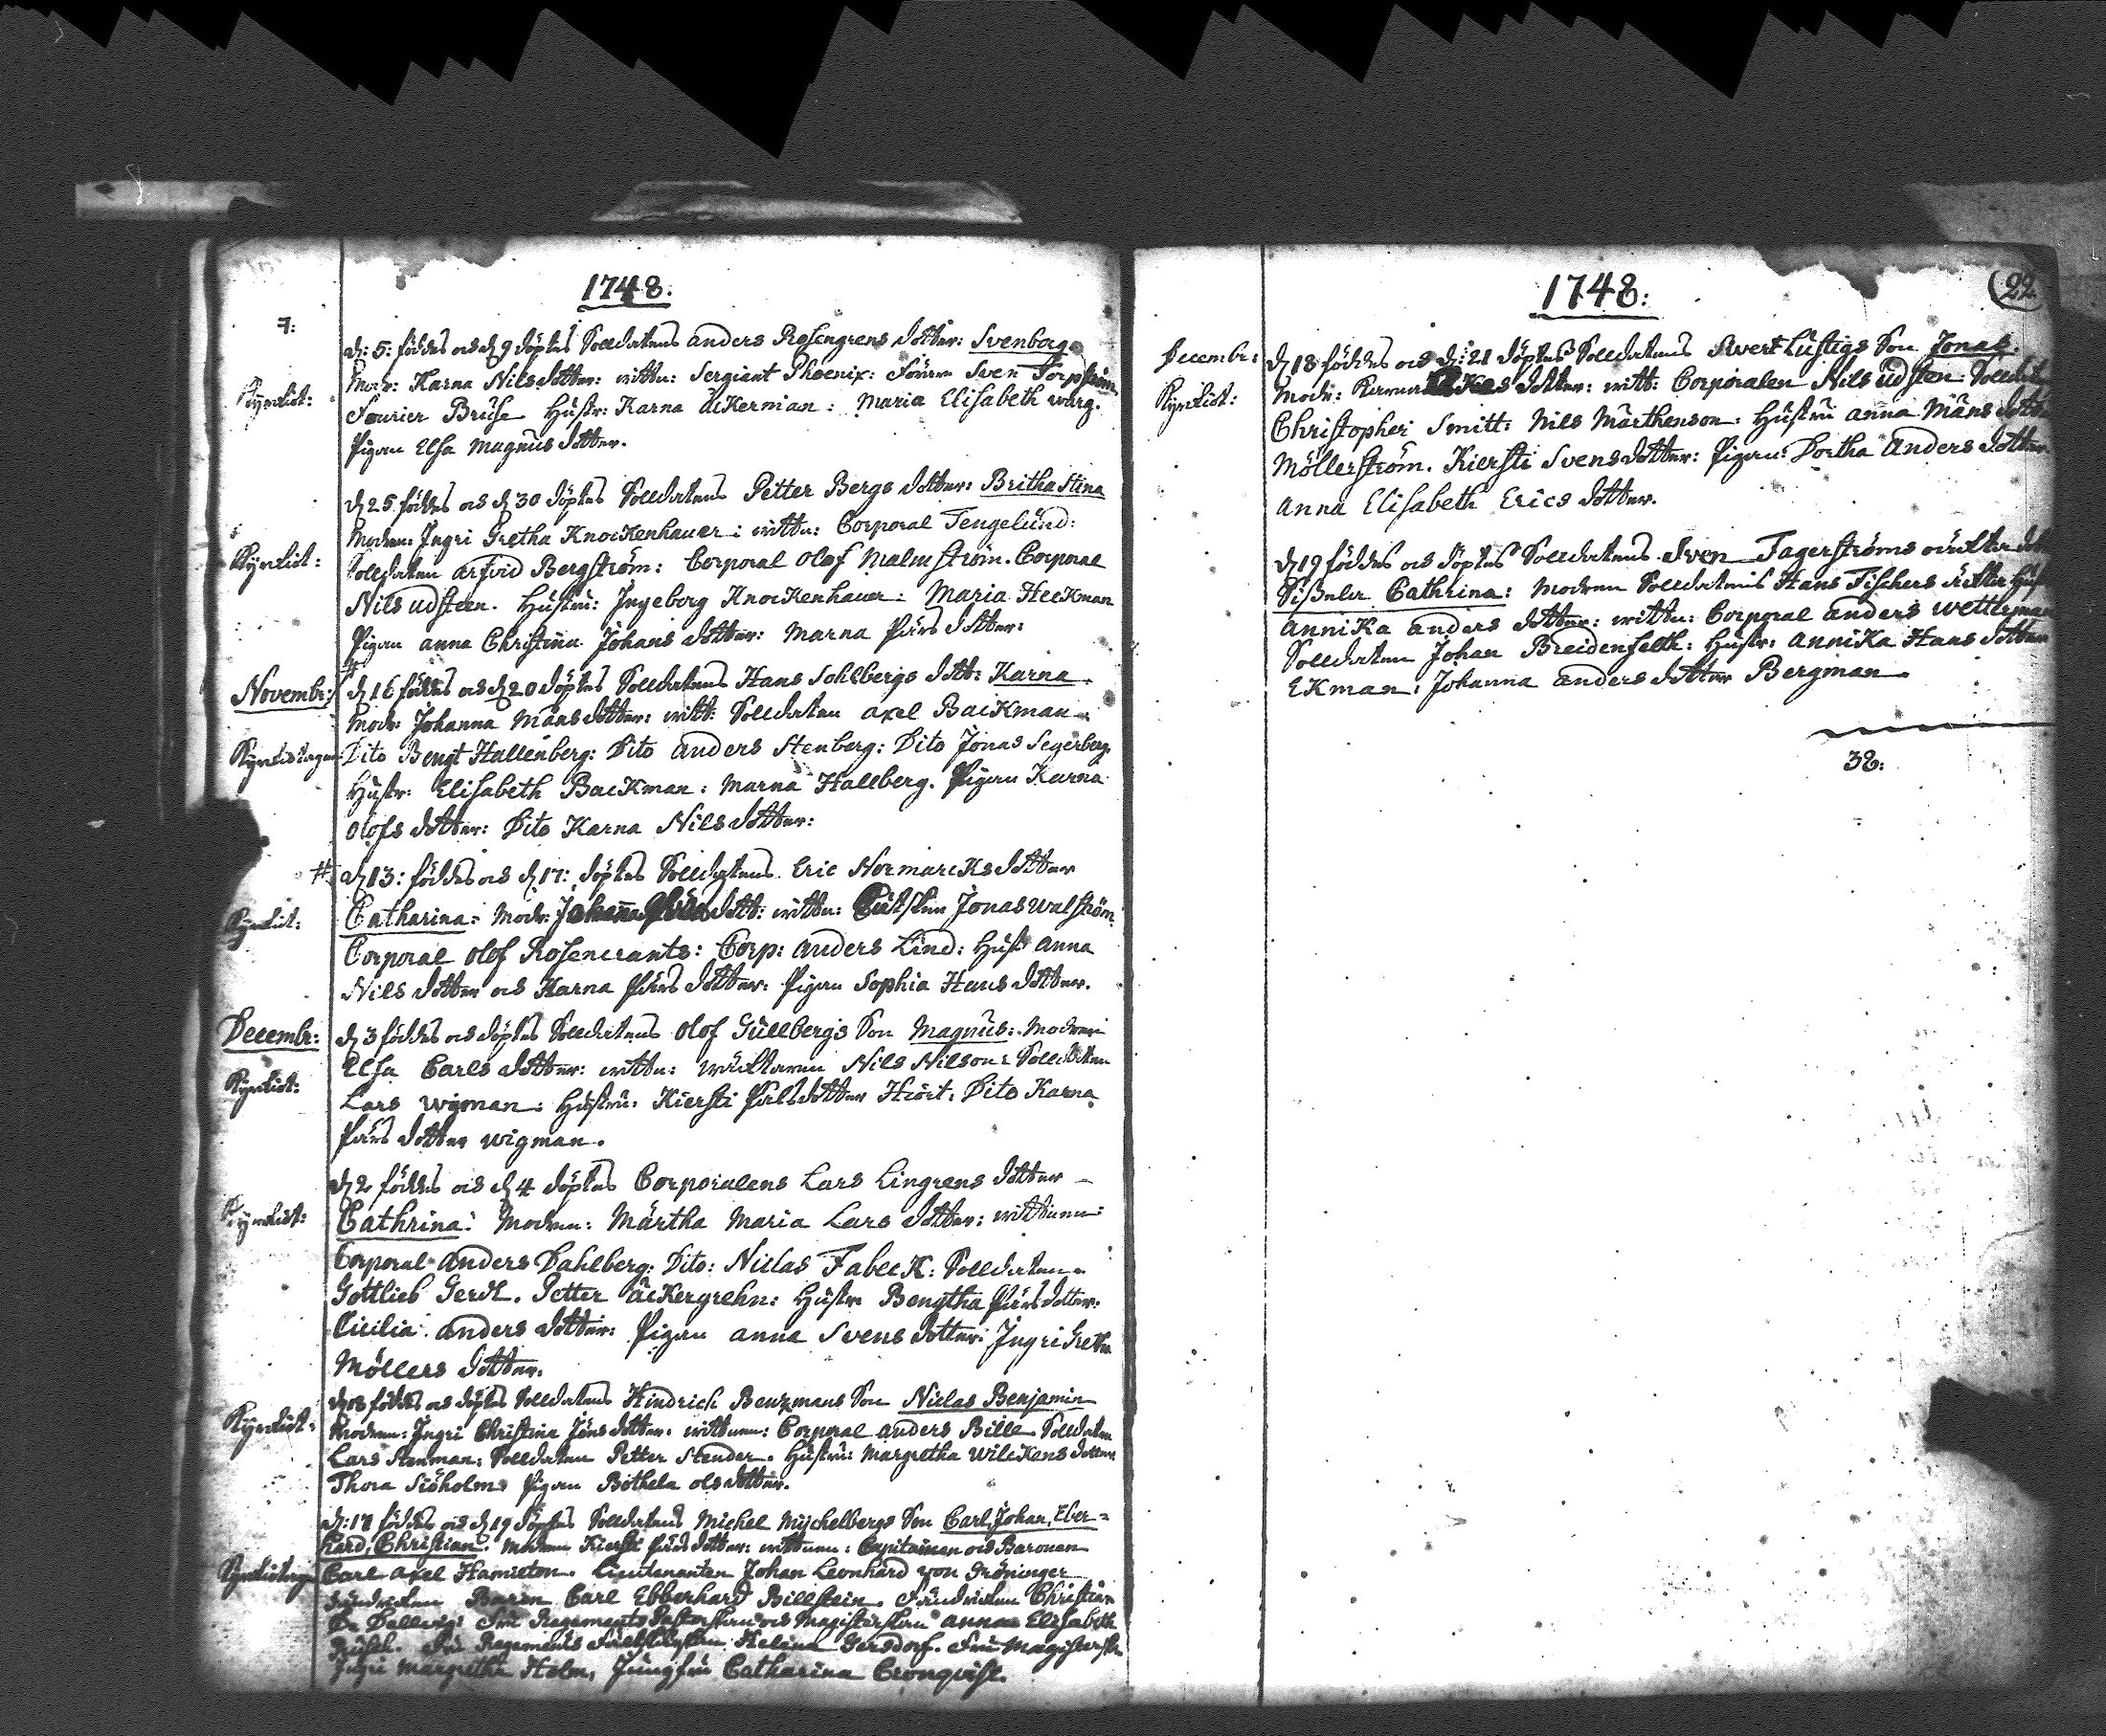 1748.
7:
d: 5: föddes och d 9 döptes Solldatens anders Rosengrens dotter: Svenborg
Kyrckiot:
Modr: Karna Nilsdotter: wittn: Sergiant Phoenix: Förarn Sven Torpström
Fourier Bruse Hustr: Karna åkerman: Maria Elisabeth warg.
Pigan Elsa Magnus dotter.
d 25 föddes och d 30 döptes Solldatens Petter Bergs dotter: Britha Stina
Modren: Jngri Gretha Knockenhauer: wittn: Corporal Tengelund:
Solldaten arfvid Bergström: Corporal Olof Malmström. Corporal
Nils udsteen. Hustru: Jngeborg Knockenhauer: Maria Heckman
Pigan anna Christina Johans dotter: Marna Pärs dotter:
Novembr:
d 16 föddes och d 20 döptes Solldatens Hans Sohlbergs dott: Karna.
Modr: Johanna Måns dotter: witt: Solldaten axel Backman.
Dito Bengt Hallenberg: Dito anders Stenberg: Dito Jonas Segerberg
Hustr: Elisabeth Backman: Marna Hallberg. Pigan Karna
Olofs dotter: Dito Karna Nils dotter:
# d 13: föddes och d 17: döptes Solldatens Eric Normarcks dotter
Catharina: Modr: dott: wittn: Jonas walström
Corporal Olof Rosencrants: Corp: anders Lind: Hust anna
Nils dotter och Karna Pärs dotter: Pigan Sophia Hans dotter.
Decembr:
d 3 föddes och döptes Solldatens Olof Gullbergs Son Magnus: Modren
Elsa Carls dotter: wittn: Nils Nilson: Solldaten
Lars wigman: Hustru: Kiersti Påls dotter Hiort: Dito Karna
Pärs dotter wigman.
d 2 föddes och d 4 döptes Corporalens Lars Lingrens dotter
Cathrina: Modren: Märtha Maria Lars dotter: wittnen:
Corporal anders Dahlberg: Dito: Niclas Fabeck: Solldaten
Gottlieb Gerdt. Petter åckergrehn: Hustr Bengtha Pärs dotter:
Cicilia anders dotter: Pigan anna Svens dotter: Jngri Gretha
Möllers dotter.
föddes och döptes Solldatens Hindrich Benzmans Son Niclas Benjamin
Modren: Jngri Christina Jöns dotter. wittnen: Corporal anders Bille Solldaten
Lars Stenman: Solldaten Petter Stender. Hustru: Margretha Wilckens dotter
Thora Siöholm. Pigan Bothela ols dotter.
d: 17 föddes och d 19 döptes Solldatens Michel Mychelbergs Son Carl, Johan, Eber=
hard, Christian. Modren Kiersti Pärs dotter: wittnen: Capitainen och Baronen
Carl axel Hamilton. Lieutenanten Johan Leonhard von Gröninger
Baron Carl Ebberhard Billstein. Fändricken Christian
Fru Regements Pastorskan och Magisterskan anna Elisabeth
Fru Regements Helena Gersdorf. Fru Magisterskan
Jngri Margretha Holm, Jungfru Catharina Cronqvist.
1748:
22
Decembr:
d 18 föddes och d: 21 döptes Solldatens Sivert Lustigs Son Jonas.
Kyrckiot:
Modr: dotter: witt: Corporalen Nils udsten: Solldaten
Christopher Smitt: Nils Märthenson: Hustru anna Måns dotter
Möllerström. Kiersti Svens dotter: Pigan: Dortha Anders dotter
Anna Elisabeth Erics dotter.
d 19 föddes och döptes Solldatens Sven Fagerströms dotter
Cathrina: Modren Solldatens Hans Fischers
annika anders dotter: wittn: Corporal anders wetterman
Solldaten Johan Breidenfelth: Hustr: annika Hans dotter
Ekman: Johanna anders dotter Bergman.
38: